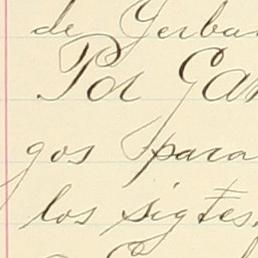 de Yerba
Por Gas
gos para
los sigtes.